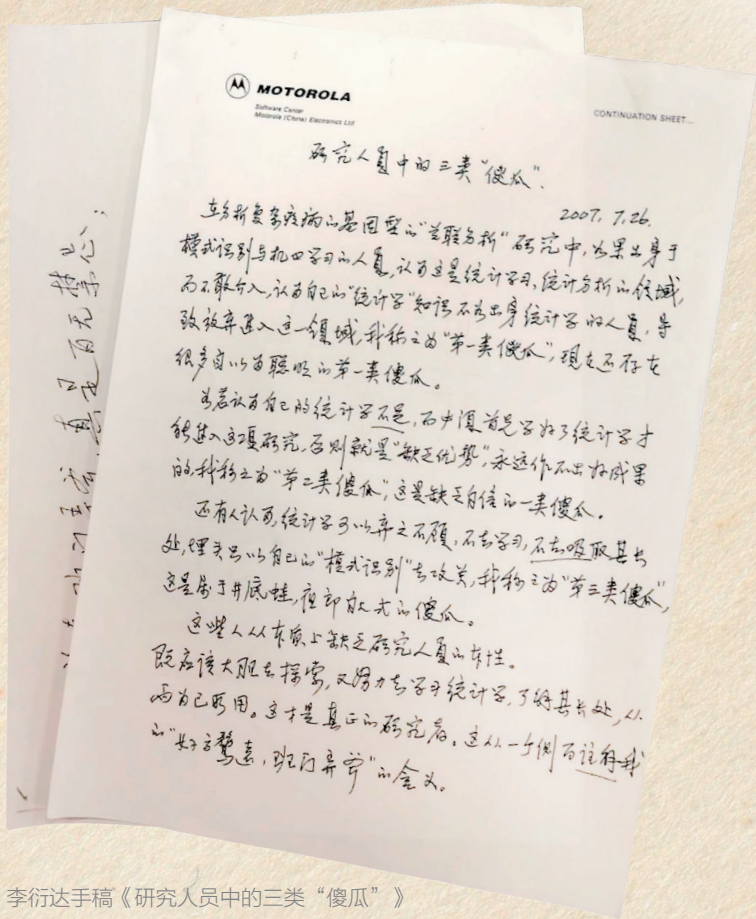 MOTOROLA
Software Center
Motorola (China) Electronics Ltd
CONTINUATION SHEET...
研究人员中的三类“傻瓜”.
2007. 7.26.
在分析复杂疾病的基因型的“关联分析”研究中,如果出身于
模式识别与机四学习的人员,认为这是统计学习,统计分析的领域,
而不敢介入,认为自己的“统计学”知识不如出身统计学的人员,导
致放弃进入这一领域,我称之为“第一类傻瓜”,现在还存在
很多自以为聪明的第一类傻瓜。
若认为自己的统计学不足,而必须首先学好了统计学才
能进入这项研究,否则就是“缺乏优势”,永远作不出好成果
的,我称之为“第二类傻瓜”,这是缺乏自信的一类傻瓜。
还有人认为,统计学可以弃之不顾,不去学习,不去吸取其长
处,埋头只以自己的“模式识别”去攻关,我称之为“第三类傻瓜”,
这是属于井底蛙,夜郎自大式的傻瓜。
这些人从本质上缺乏研究人员的本性。
既应该大胆去探索,又努力去学习统计学,了解其长处,从
而为己所用。这才是真正的研究者。这从一个侧面注释我
的“好高骛远,班门弄斧”的含义。
真是百无禁忌;
李衍达手稿《研究人员中的三类“傻瓜”》